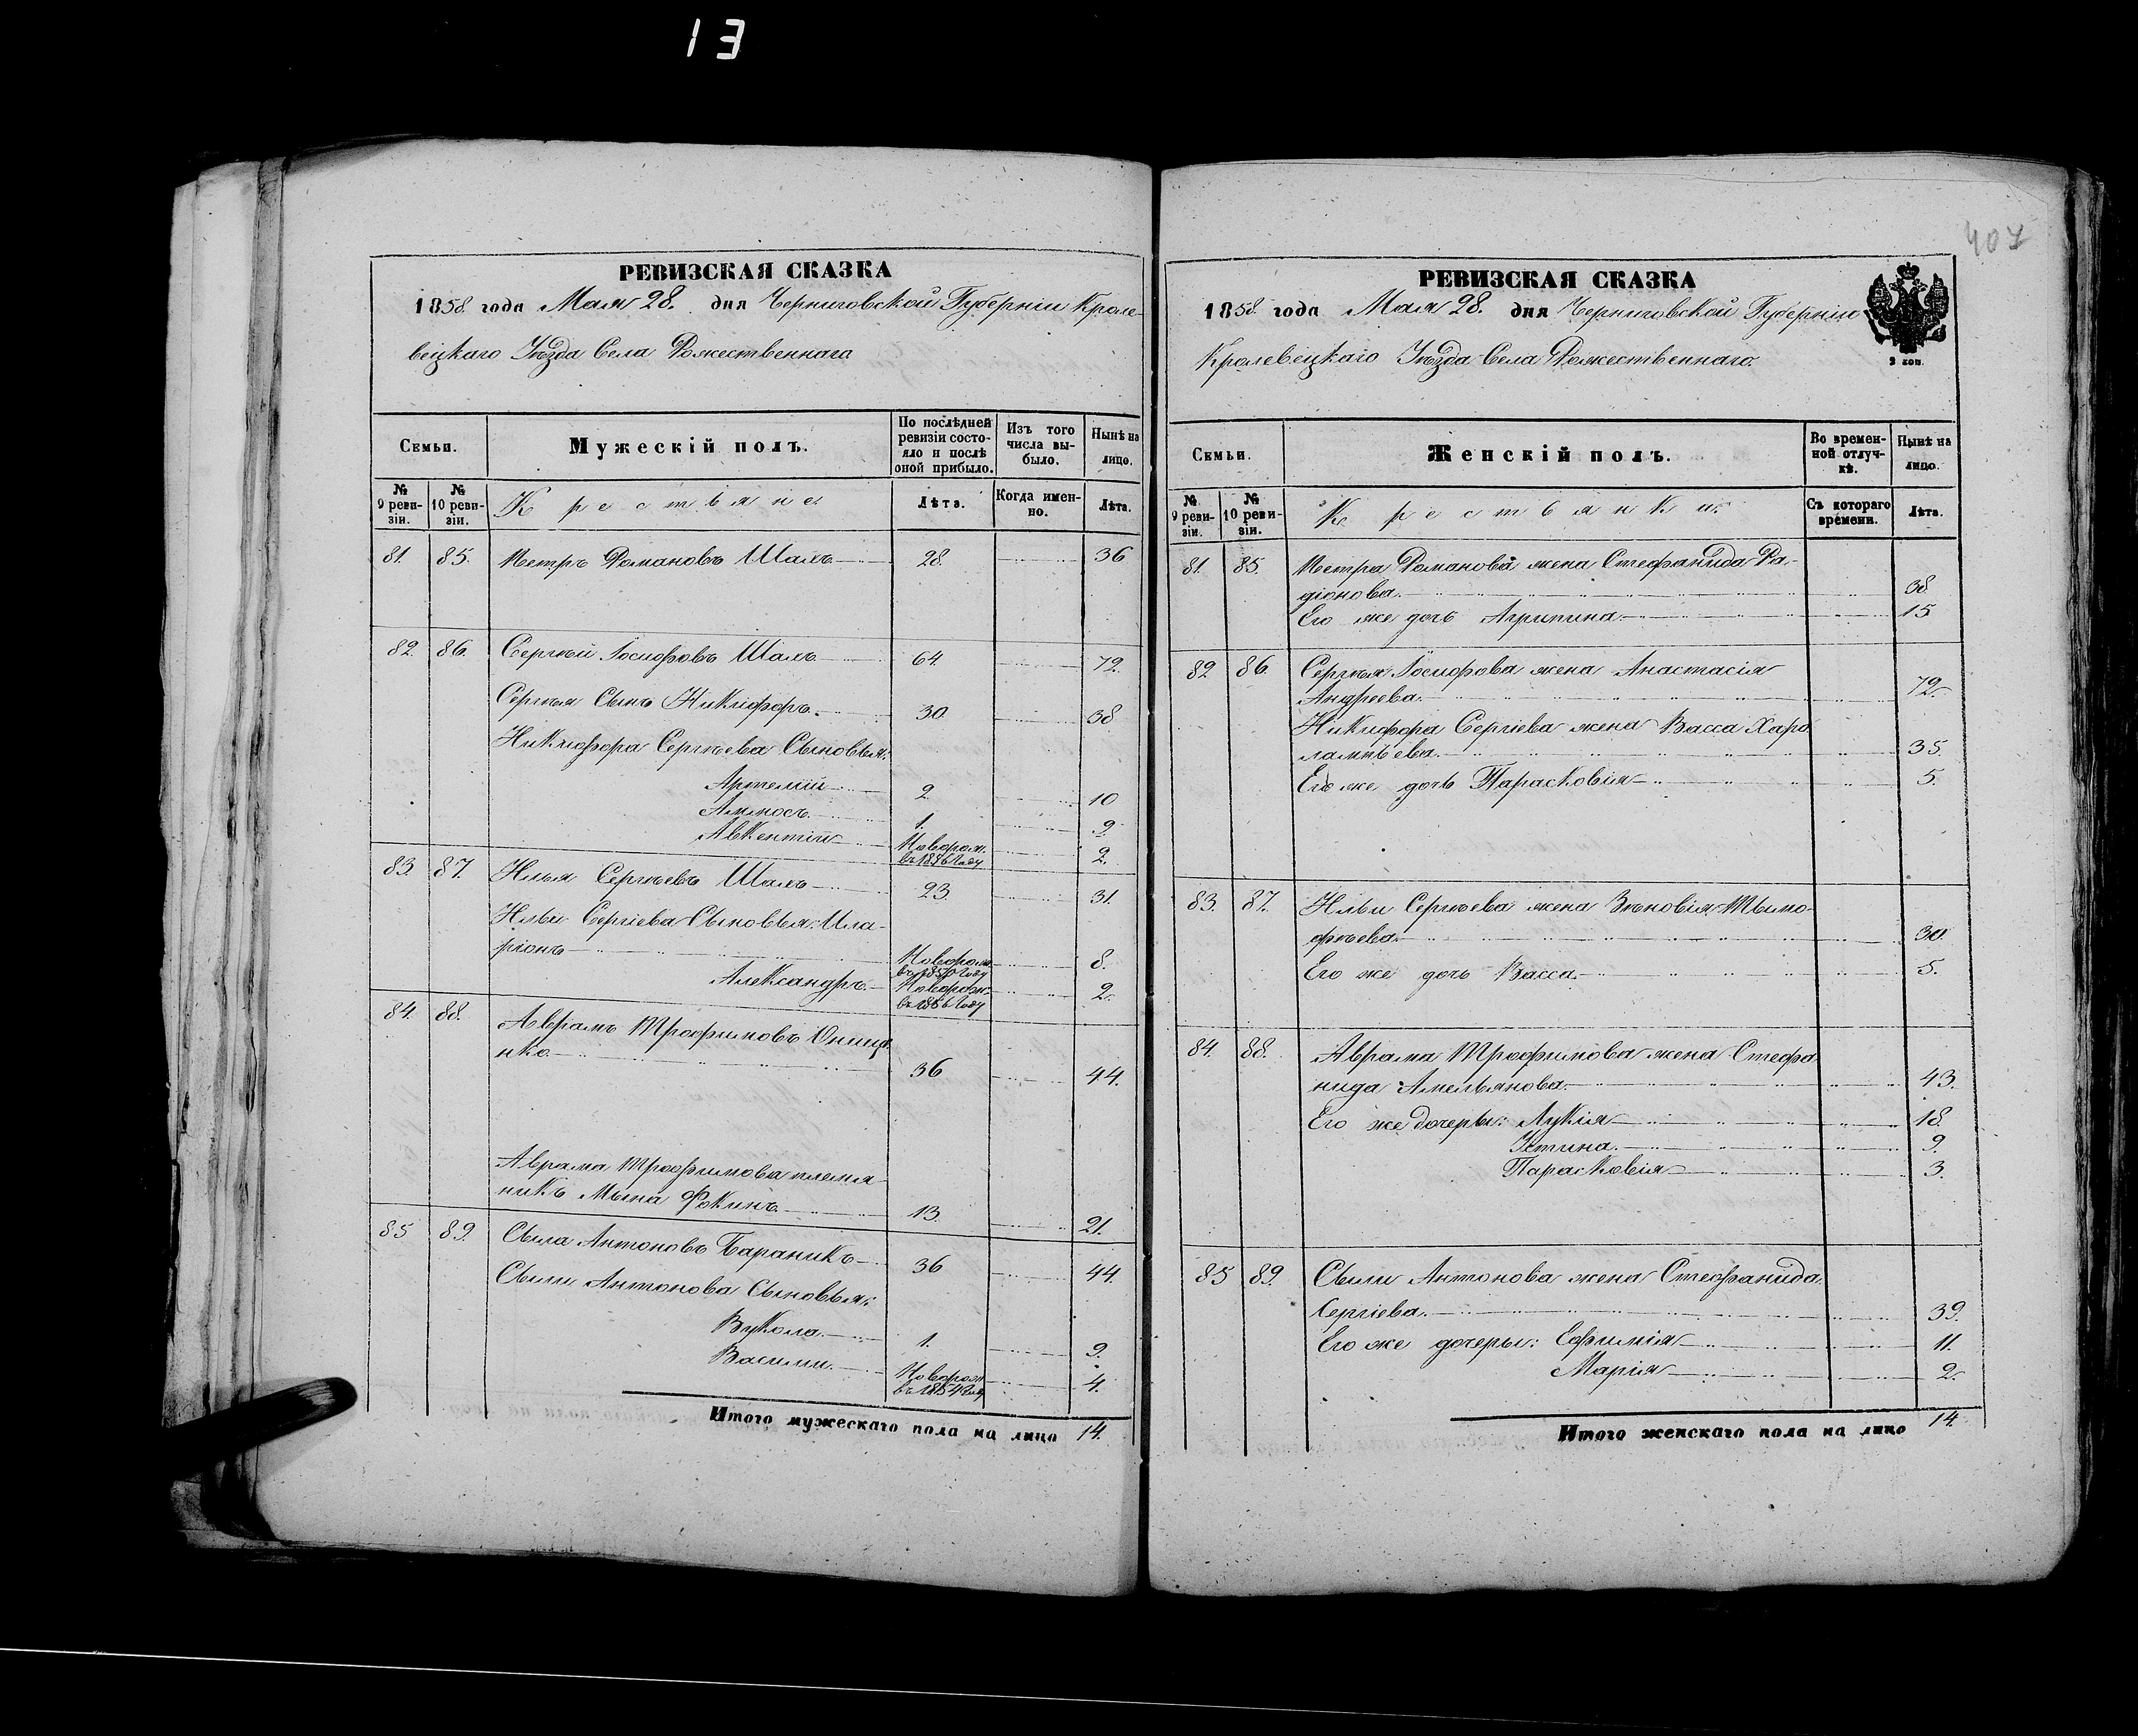 13
407
РЕВИЗСКАЯ СКАЗКА
1858 года Мая 28. дня Черниговской Губерніи Кроле-
вецкаго Уѣзда Села Рожественнаго
Семьи.
Мужескій полъ.
По послѣдней ревизіи состо-яло и послѣ оной прибыло.
Изъ того числа вы-было.
Нынѣ на лицо.
№ 9 реви-зіи.
№ 10 реви-зіи.
Крестьяне
Лѣта.
Когда имен-но.
Лѣта.
81. 85. Петръ Романовъ Шалъ 28. 36
82. 86. Сергѣй Іосифовъ Шалъ 64 72.
Сергѣя Сынъ Никифоръ. 30. 38
Никифора Сергѣева Сыновья:
Артемій 2 10
Аммосъ 1. 9.
Авкентій Новорож. въ 1856 году 2.
83. 87. Илья Сергѣевъ Шалъ 23. 31.
Ильи Сергіева Сыновья: Ила-
ріонъ Новорож. въ 1850 году 8.
Александръ Новорож. въ 1856 году 2.
84. 88. Аврамъ Трофимовъ Онище-
нко 36 44.
Аврама Трофимова племя-
никъ Мына Фокинъ 13. 21.
85 89. Сыла Антоновъ Бараникъ 36 44.
Сылы Антонова Сыновья:
Вукола 1. 9.
Василии Новорож. въ 1854 году 4.
Итого мужескаго пола на лицо 14.
РЕВИЗСКАЯ СКАЗКА
1858 года Мая 28. дня Черниговской Губерніи
Кролевецкаго Уѣзда Села Рожественнаго.
3 коп.
Семьи.
Женскій полъ.
Во времен-ной отлуч-кѣ.
Нынѣ на лицо.
№ 9 реви-зіи.
№ 10 реви-зіи.
Крестьянки
Съ котораго времени.
Лѣта.
81. 85. Петра Романова жена Стефанида Ра-
діонова. 38.
Его же дочь Агрипина 15
82 86. Сергѣя Іосифова жена Анастасія
Андреева. 72.
Никифора Сергіева жена Васса Хара
лампѣева. 35.
Его же дочь Парасковія 5.
83. 87. Ильи Сергѣева жена Зѣновія Тымо-
фѣева. 30.
Его же дочь Васса. 5.
84. 88. Аврама Трофимова жена Стефа
нида Амельянова. 43.
Его же дочеры: Лукія 18.
Устина. 9.
Парасковія 3.
85 89. Сылы Антонова жена Стефанида
Сергіева. 39.
Его же дочеры: Ефимія 11.
Марія 2.
Итого женскаго пола на лицо 14.